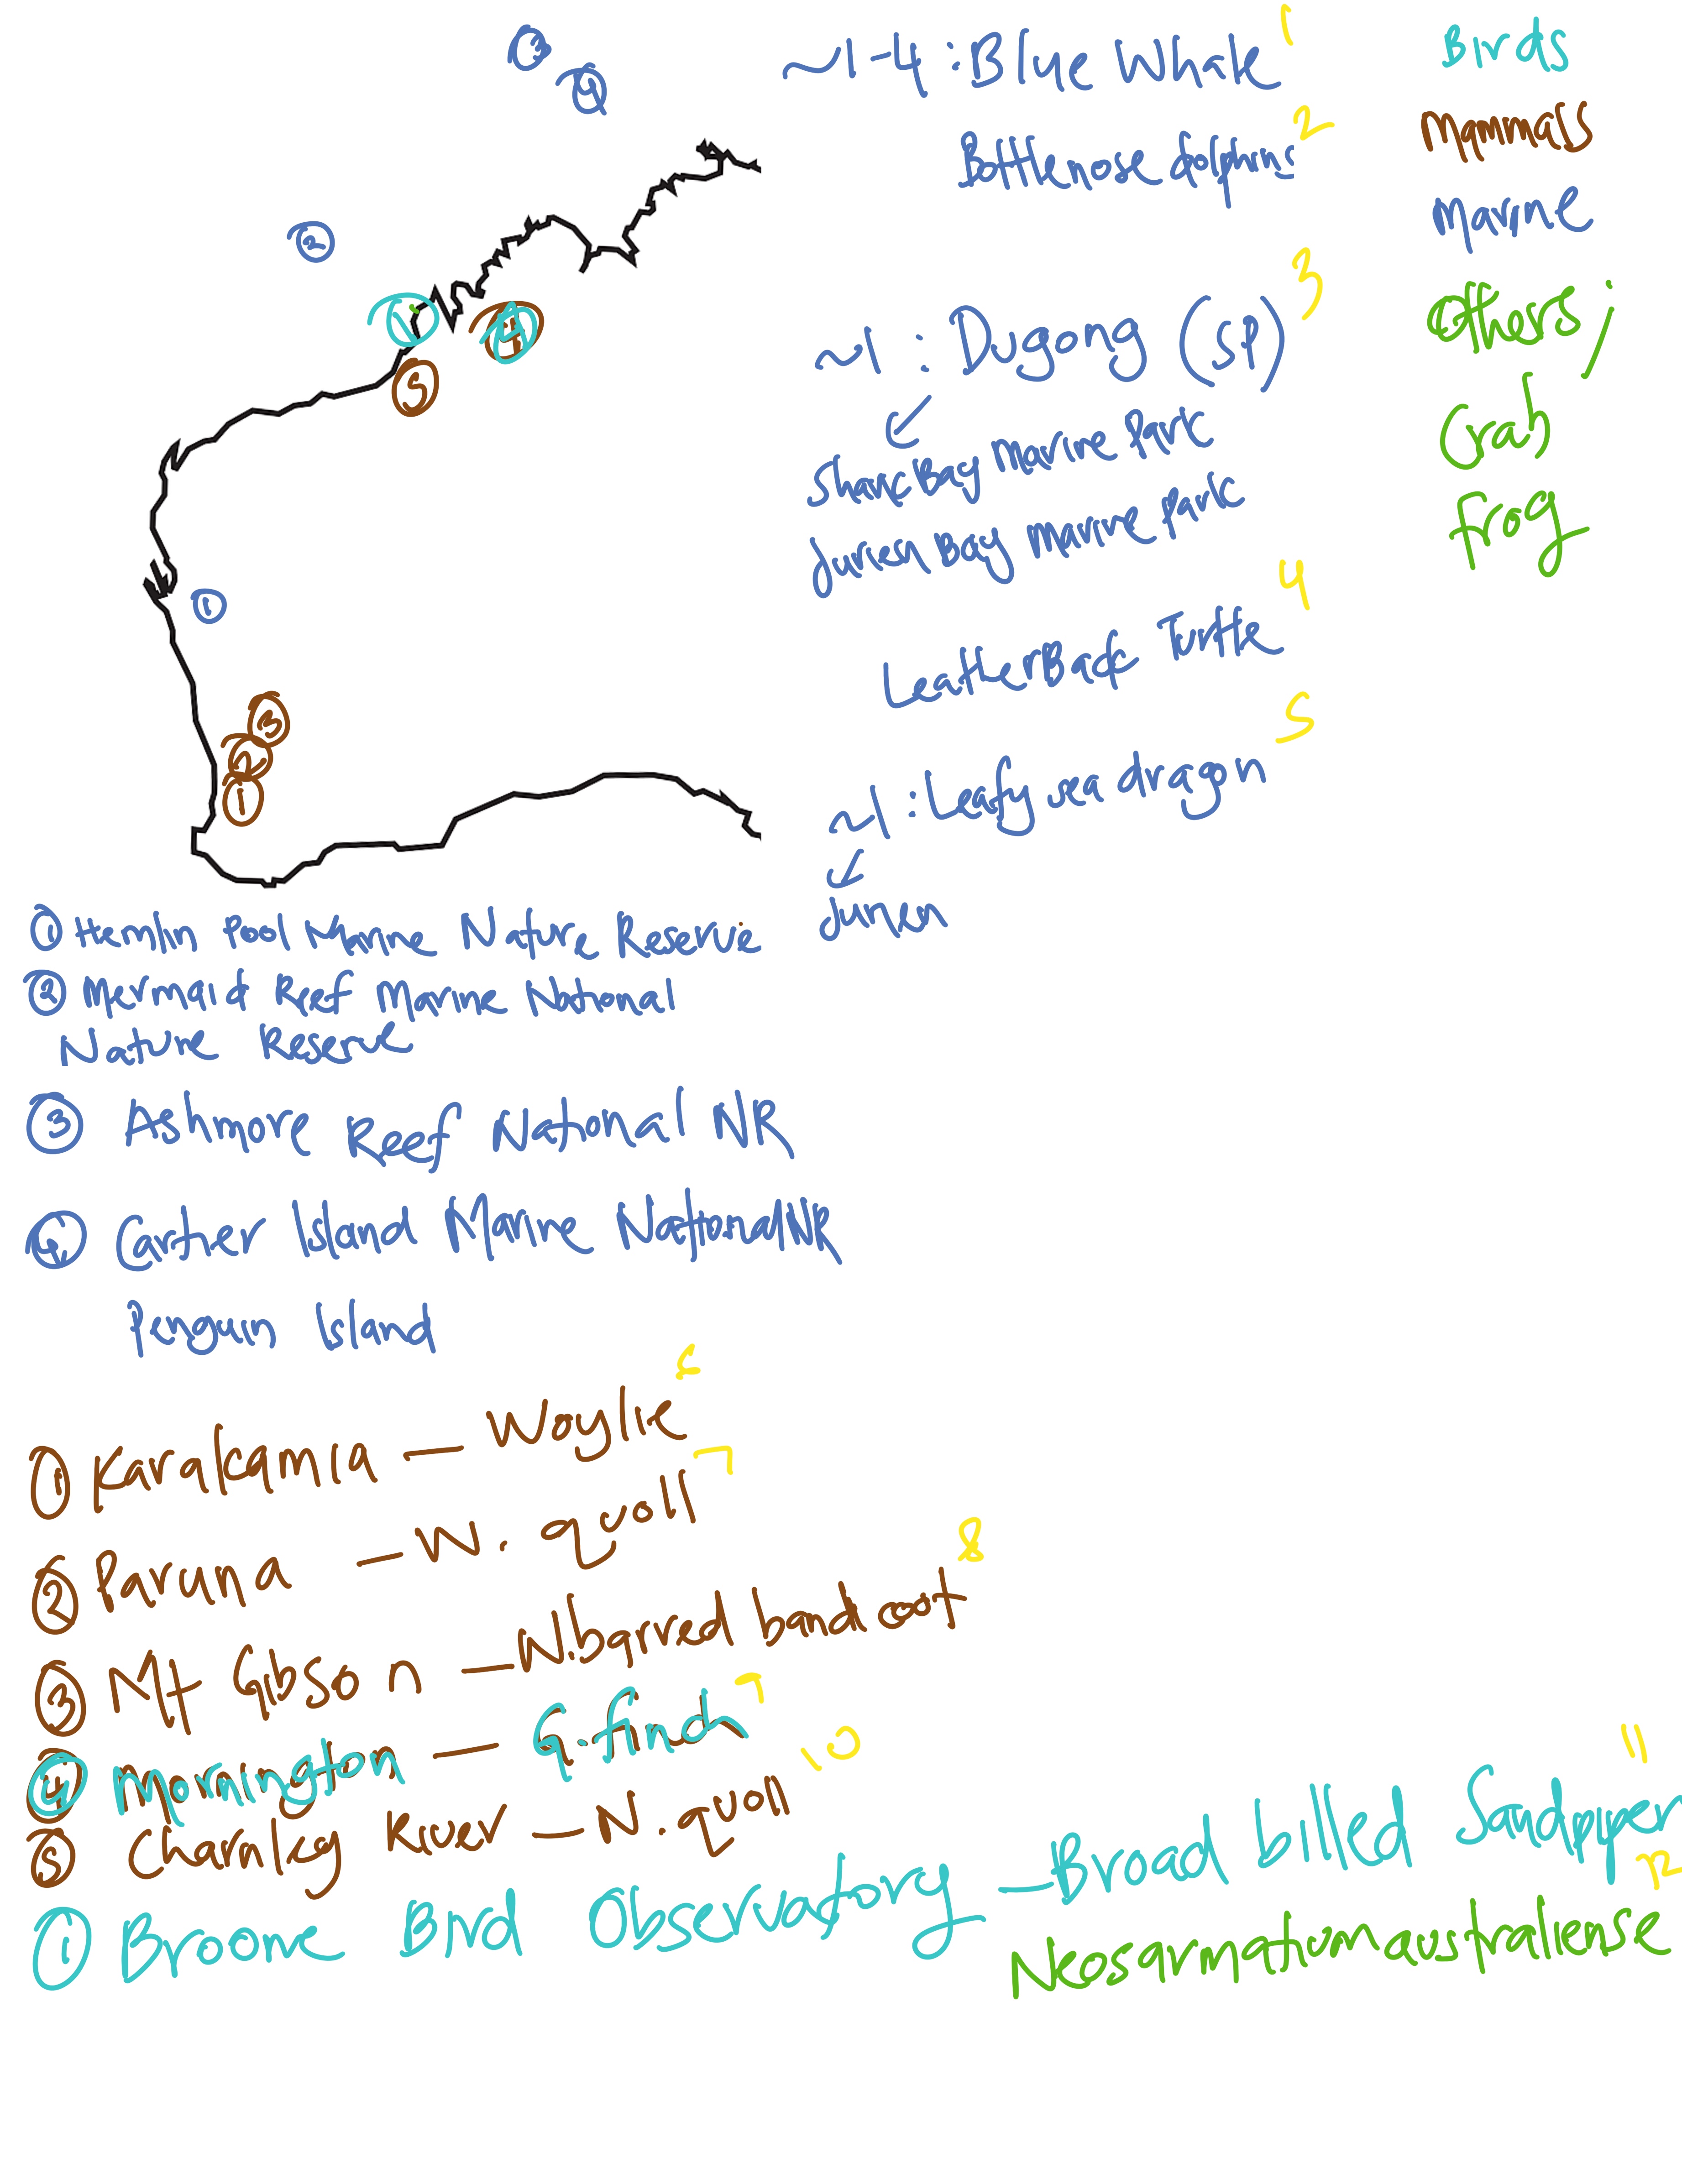 3
4
~1-4 : Blue Whale 1
Bottlenose dolphins 2
Birds
Mammals
Marine
Others;
Crab
frog
2
1
4
5
~1 : Dugong (sp) 3
Shark Bay Marine Park
Jurien Bay Marine Park
Leather Back Turtle 4
1
3
2
1
~1 : Leafy sea dragon 5
Jurien
① Hemlin Pool Marine Nature Reserve
② Mermaid Reef Marine National
Nature Reserve
③ Ashmore Reef National NR
④ Cartier Island Marine National NR
Penguin Island
① Karakamia — Woylie 6
② Paruna — N. quoll 7
③ Mt Gibson — W.barred bandicoot 8
④ Mornington — G. finch 9
⑤ Charnley River — N. quoll 10
① Broome Bird Observatory — Broad billed Sandpiper 11
Neosarmatium australiense 12